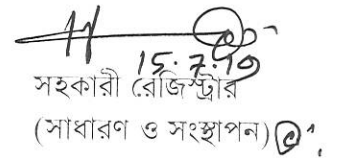 15.7.19
সহকারী রেজিস্ট্রার
(সাধারণ ও সংস্থাপন)